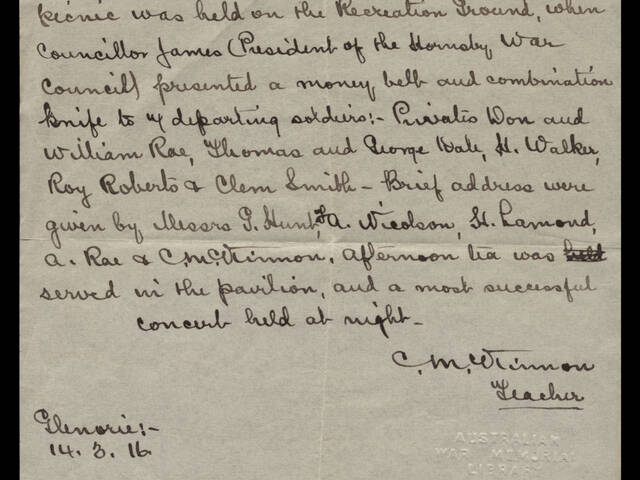 picnic was held on the Recreation Ground, when
Councillor James (President of the Hornsby War
Council) presented a money belt and combination
knife to 7 departing soldiers:- Privates Don and
William Rae, Thomas and George Hale, H. Walker,
Roy Roberts & Clem Smith - Brief address were
given by Messrs G. Hunt, F A. Nicolson, H. Lamond,
A. Rae & C. McKinnon. Afternoon tea was held
served in the pavilion, and a most successful
concert held at night -
C. McKinnon
Teacher
Glenorie:-
14. 3. 16.
AUSTRALIAN
WAR MEMORIAL
LIBRARY